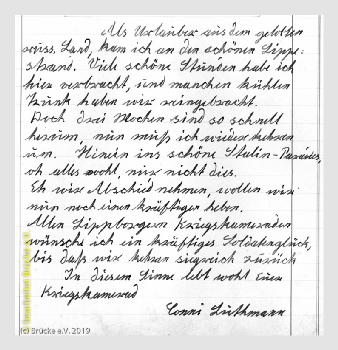 Als Urlauber aus dem gelobten
russ. Land, kam ich an den schönen Lippe-
strand. Viele schöne Stunden hab ich
hier verbracht, und manchen kühlen
Trunk haben wir reingebracht.
Doch drei Wochen sind so schnell
herum, nun muß ich wieder kehren
um. Hinein ins schöne Stalin-Paradies,
oh alles wohl, nur nicht dies.
Eh wir Abschied nehmen, wollen wir
nun noch einen kräftigen heben.
Allen Lippborgern Kriegskameraden
wünsche ich ein kräftiges Soldatenglück,
bis daß wir kehren siegreich zurück
In diesem Sinne lebt wohl Euer
Kriegskamerad
Conni Luthmann
(c) Brücke e.V. 2019